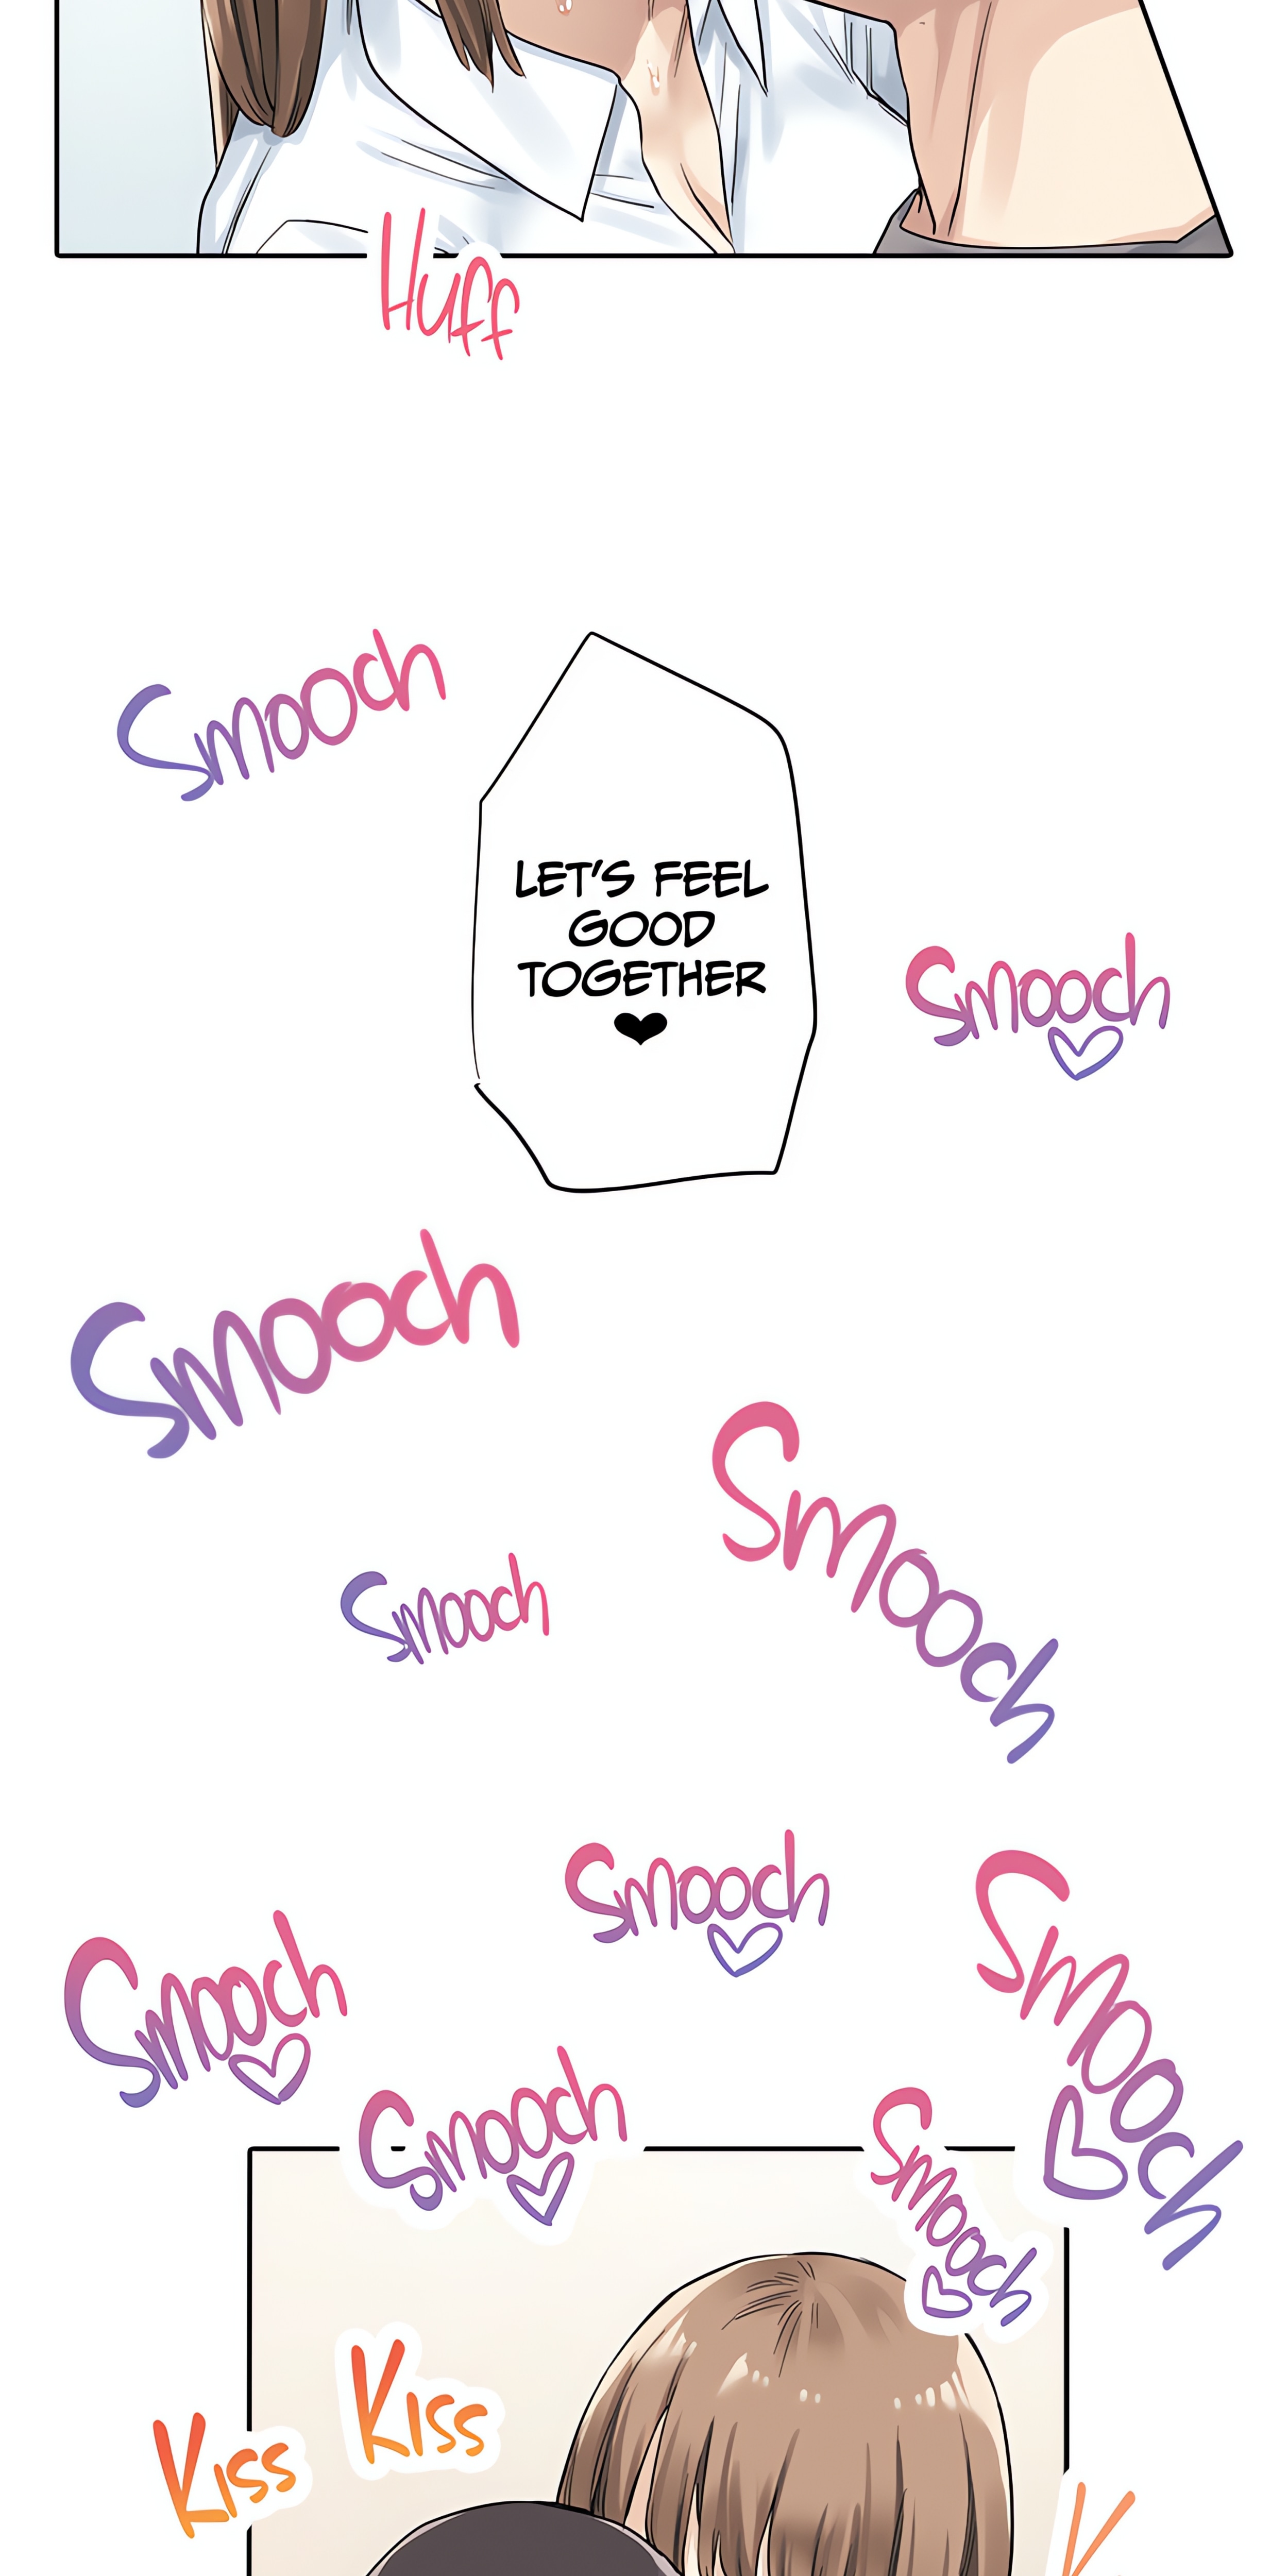 Huff
Smooch
LET'S FEEL
GOOD
TOGETHER
❤
Smooch♡
Smooch
Smooch
Smooch
Smooch♡
Smooch♡
Smooch♡
Smooch♡
Smooch♡
Kiss
Kiss
K